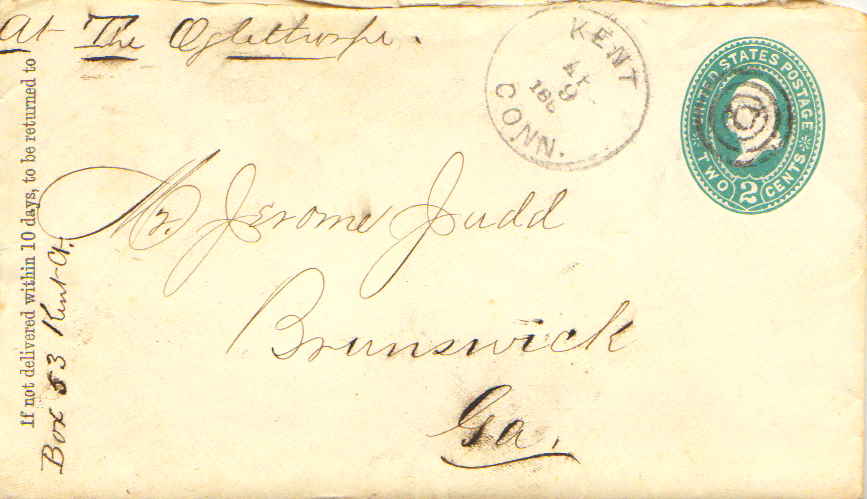 At The Oglethorpe.
KENT
AP
9
188
CONN.
UNITED STATES POSTAGE
TWO 2 CENTS
Mr. Jerome Judd
Brunswick
Ga.
If not delivered within 10 days, to be returned to
Box 53 Kent Ct.